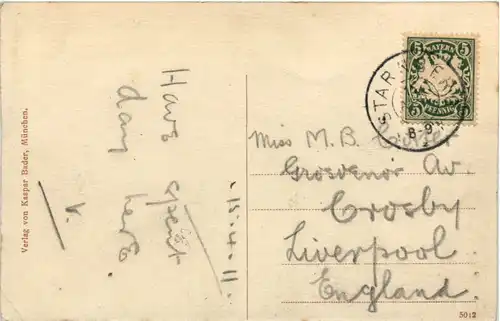 15.4.11.
Have spent
day here.
V.
Verlag von Kaspar Bader, München.
5 BAYERN 5
5 PFENNIG 5
STARN
8-9
Miss M. B.
Grosvenor Av.
Crosby
Liverpool
England.
5012